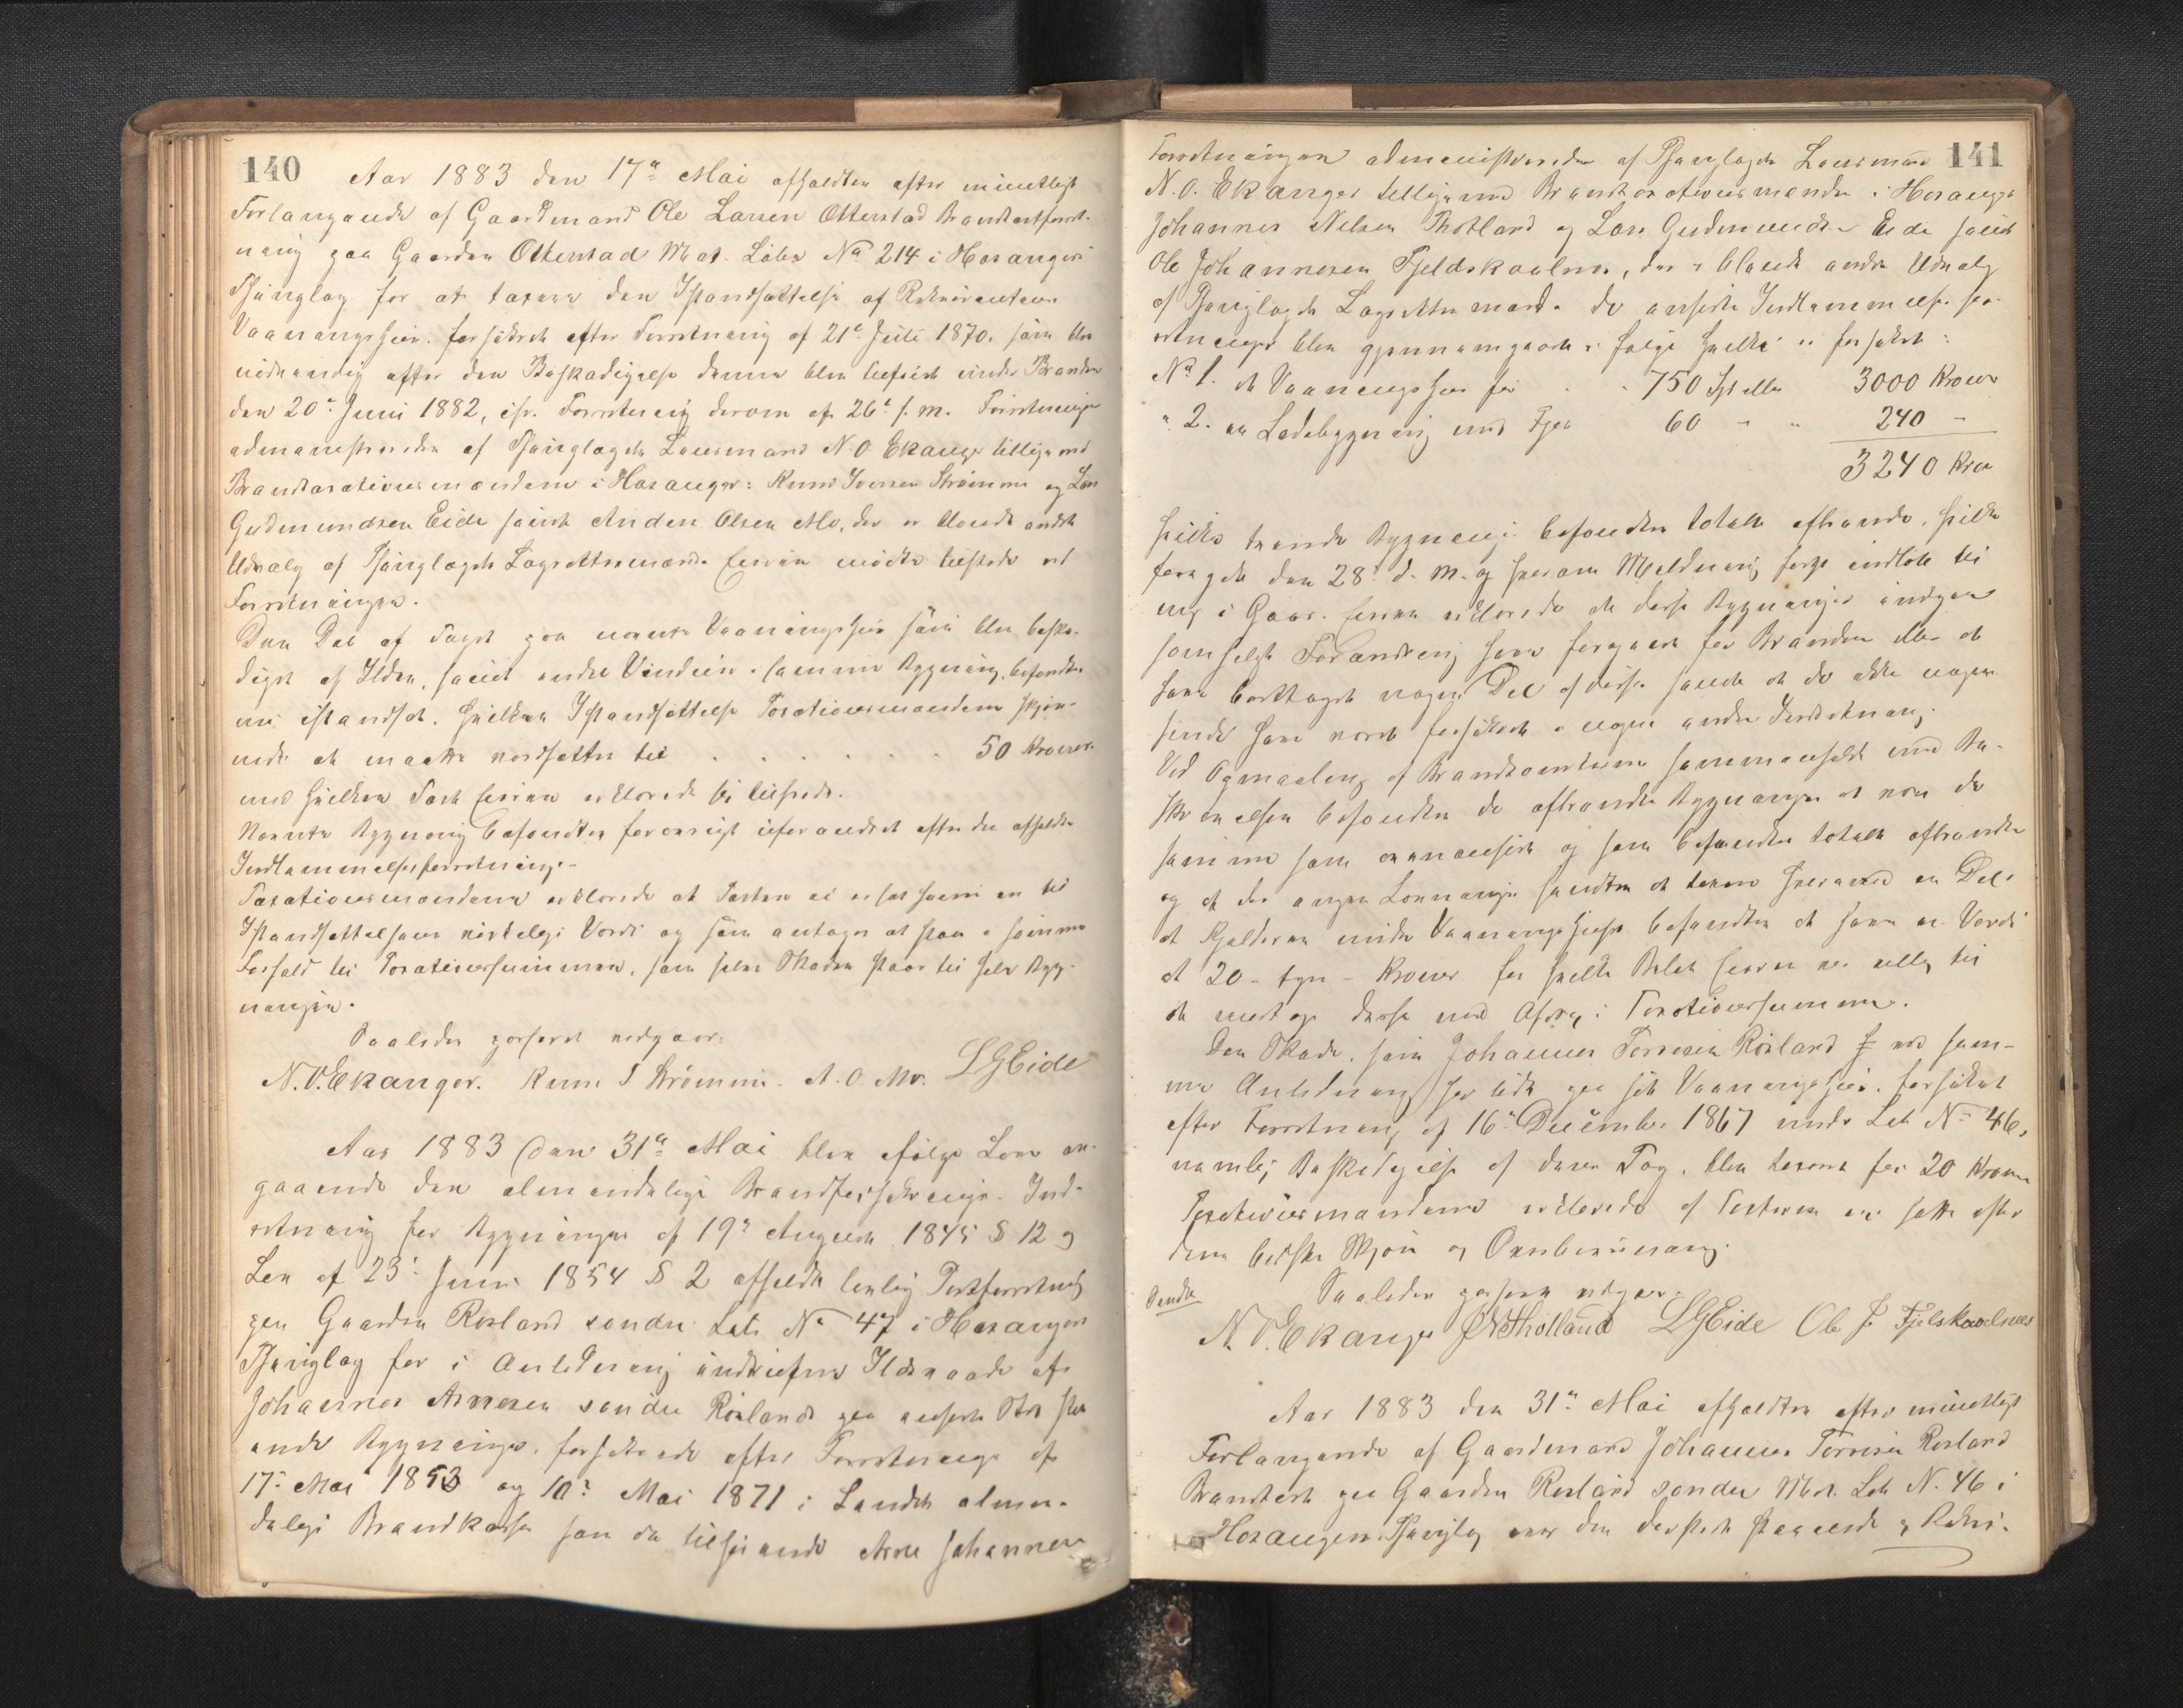 140
Aar 1883 den 17de Mai afholdtes efter mundtligt
Forlangende af Gaardmand Ole Larsen Otterstad Brandtaxtforret-
ning paa Gaarden Otterstad Mat. Løbe No 214 i Hosangers
Thinglag for at taxere den Istandsættelse af Rekvirentens
Vaaningshuus, forsikret efter Forretning af 21de Juli 1870, som blev
nødvendig efter den Beskadigelse denne blev tilføiet under Branden
den 20de Juni 1882, cfr. Forretning derom af 26de s. m. Forretningen
administreredes af Thinglagets Lensmand N. O. Ekanger tilligemed
Brandtaxationsmændene i Hosanger: Knud Iversen Strømme og Lars
Gudmundsen Eide samt Anders Olsen Mo, der er blandt andet
Udvalg af Thinglagets Lagrettemænd. Eieren mødte tilstede ved
Forretningen.
Den Del af Taget paa nævnte Vaaningshuus som blev beska-
diget af Ilden, samt andre Vinduer i samme Bygning, befandtes
nu istandsat, hvilken Istandsættelse Taxationsmændene skjøn-
nede at maatte værdsættes til . . . . . . 50 Kroner.
med hvilken Taxt Eieren erklærede sig tilfreds.
Nævnte Bygning befandtes forøvrigt uforandret efter den afholdte
Indlemmelsesforretning.
Taxationsmændene erklærede at Taxten ei er sat høiere end til
Istandsættelsens virkelige Værdi og som antages at staa i samme
Forhold til Taxationssummen, som selve Skaden staar til hele Byg-
ningen.
Saaledes passeret vedgaar:
N. O. Ekanger. Knud I Strømme. A. O. Mo. LGEide
Aar 1883 den 31de Mai blev ifølge Lov an-
gaaende den almindelige Brandforsikrings-Ind-
retning for Bygninger af 19de August 1845 § 12 og
Lov af 23de Juni 1854 § 2 afholdt lovlig Taxtforretning
paa Gaarden Rosland søndre Løbe No 47 i Hosangers
Thinglag for i Anledning indtruffen Ildsvaade af
Johannes Arnesen søndre Roslands paa anførte Sted staa
ende Bygninger, forsikrede efter Forretninger af
17de Mai 1853 og 10de Mai 1871 i Landets almin-
delige Brandkasse som da tilhørende Arne Johannesen
141
Forretningen administreredes af Thinglagets Lensmand
N. O. Ekanger tilligemed Brandtaxationsmændene i Hosanger
Johannes Nelsen Thotland og Lars Gudmundsen Eide samt
Ole Johannesen Fjeldskaalnes, der er blandt andre Udvalg
af Thinglagets Lagrettemænd. De anførte Indlemmelsesfor-
retninger blev gjennemgaaet i følge hvilke er forsikret:
No 1. et Vaaningshuus for . . 750 Spd eller 3000 Kroner
" 2. en Ladebygning med Fjøs 60 - " 240 -
3240 Kroner
hvilke tvende Bygninger befandtes totalt afbrændte, hvilket
foregik den 28de d. M. og hvorom Melding først indløb til
mig i Gaar. Eieren erklærede at disse Bygninger ei nogen
somhelst Forandring have foregaaet før Branden eller at
have borttaget nogen Del af disse samt at de ikke nogen-
sinde have været forsikret i nogen anden Indretning.
Ved Opmaaling af Brandtomterne sammenholdt med Be-
skrivelsen befandtes de afbrændte Bygninger at være de
samme som ommeldt og som befandtes totalt afbrændte
og at der ingen Levninger fandtes at taxere hvorimod en Del
af Kjelderen under Vaaningshuset befandtes at have en Værdi
af 20 - tyve - Kroner for hvilket Beløb Eieren var villig til
at modtage disse med Afdrag i Taxationssummen.
Den Skade, som Johannes Torresen Rosland ved sam-
me Anledning har lidt paa sit Vaaningshuus, forsikret
efter Forretning af 16de December 1867 under Løbe No 46,
nemlig Beskadigelse af dens Tag, blev taxeret for 20 Kroner
Taxationsmændene erklærede at Taxterne er satte efter
deres bedste Skjøn og Overbeviisning.
Saaledes passeret vedgaar:
N. O. Ekanger JNThotland LGEide Ole J. Fjelskaalnes
Aar 1883 den 31te Mai afholdtes efter mundtligt
Forlangende af Gaardmand Johannes Torresen Rosland
Brandtaxt paa Gaarden Rosland søndre Mat. Løb N. 46 i
Hosangers Thinglag over den dersteds staaende og Rekvi-